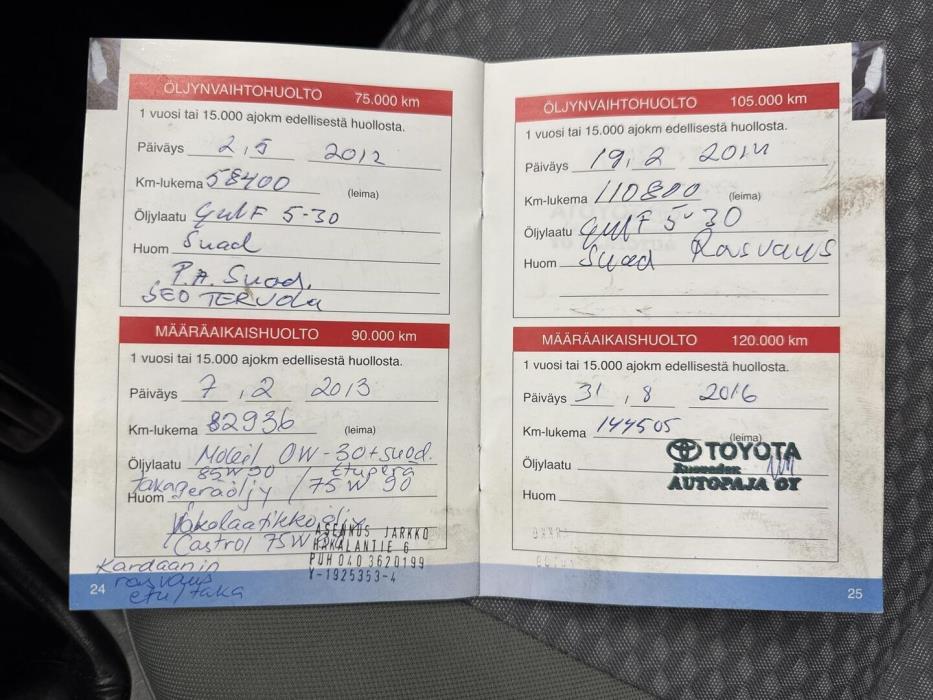 ÖLJYNVAIHTOHUOLTO 75.000 km
1 vuosi tai 15.000 ajokm edellisestä huollosta.
Päiväys 2,5 2012
Km-lukema 58400 (leima)
Öljylaatu Gulf 5-30
Huom Suod
P.A. Suod.
SEO TERVOLA
MÄÄRÄAIKAISHUOLTO 90.000 km
1 vuosi tai 15.000 ajokm edellisestä huollosta.
Päiväys 7,2 2013
Km-lukema 82936 (leima)
Öljylaatu Mobil 0W-30+suod.
85W90 Etuperä
takaperäöljy / 75W90
Huom
Jakolaatikkoöljy
Castrol 75W
ASENNUS JARKKO
HAKALANTIE 6
PUH 040 3620199
Y-1925353-4
Kardaanin
rasvaus
etu/taka
24
ÖLJYNVAIHTOHUOLTO 105.000 km
1 vuosi tai 15.000 ajokm edellisestä huollosta.
Päiväys 19,2 2014
Km-lukema 110800 (leima)
Öljylaatu Gulf 5-30
Huom Suod Rasvaus
MÄÄRÄAIKAISHUOLTO 120.000 km
1 vuosi tai 15.000 ajokm edellisestä huollosta.
Päiväys 31,8 2016
Km-lukema 144505 (leima)
Öljylaatu
TOYOTA
AUTOPAJA OY
Huom
25